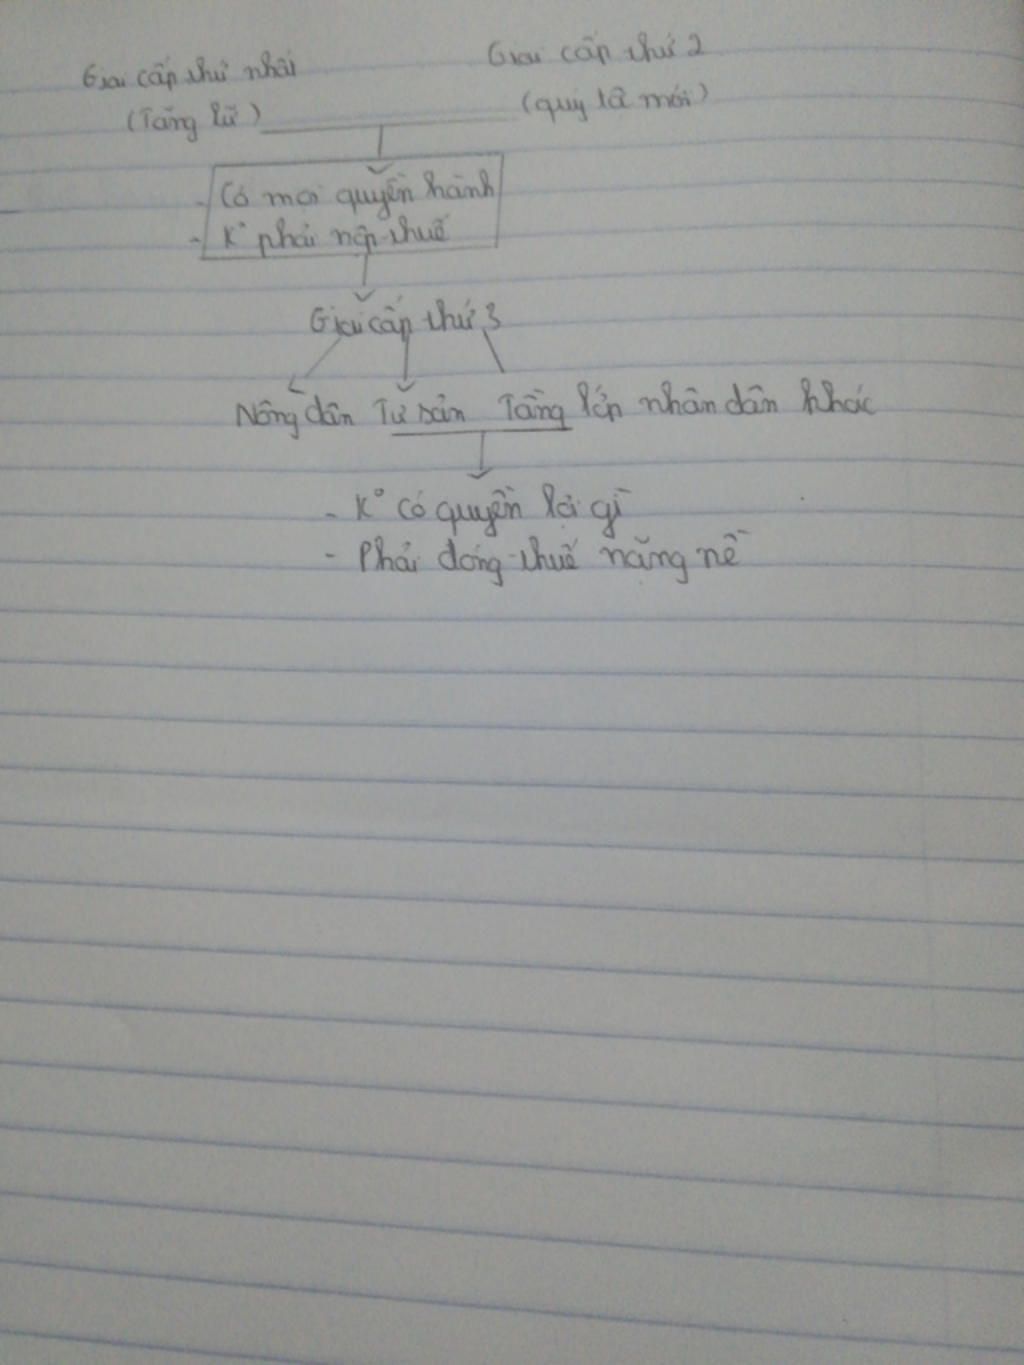 Giai cấp thứ nhất
Giai cấp thứ 2
(Tăng lữ)
(quý tộc mới)
- Có mọi quyền hành
- K° phải nộp thuế
Giai cấp thứ 3
Nông dân Tư sản Tầng lớp nhân dân khác
- K° có quyền lợi gì
- Phải đóng thuế nặng nề